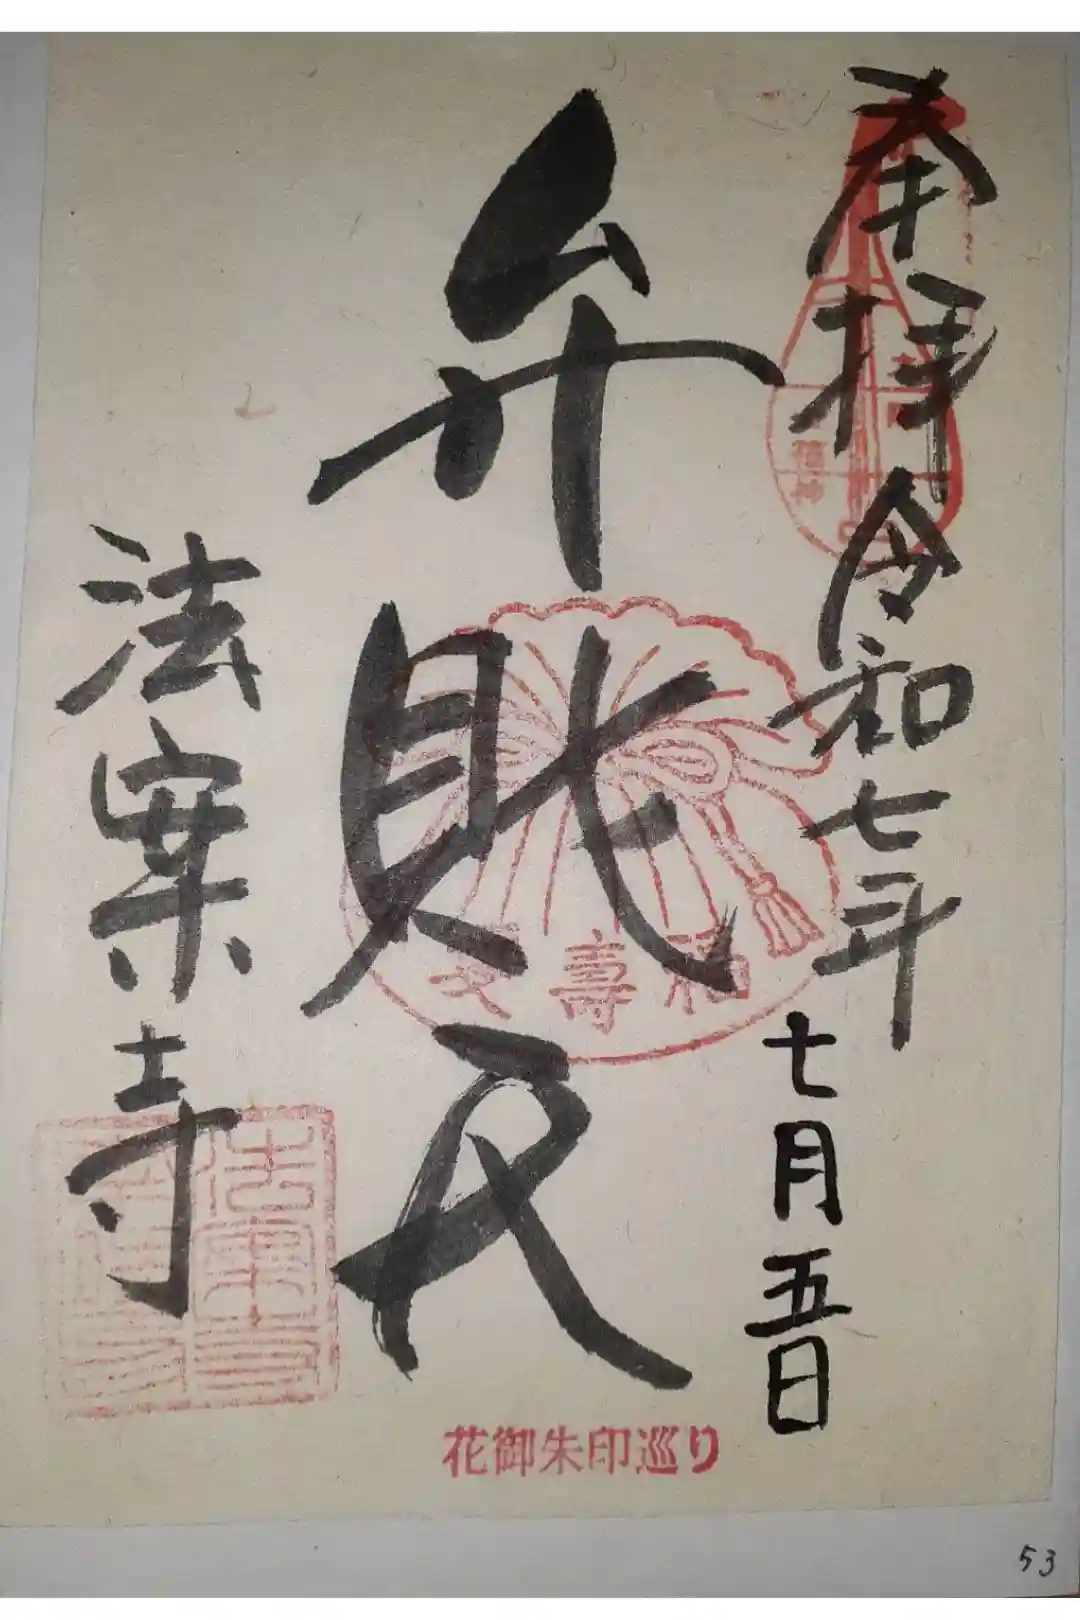 奉拝 令和七年 七月五日
福神
弁財天
福壽
法案寺
花御朱印巡り
53